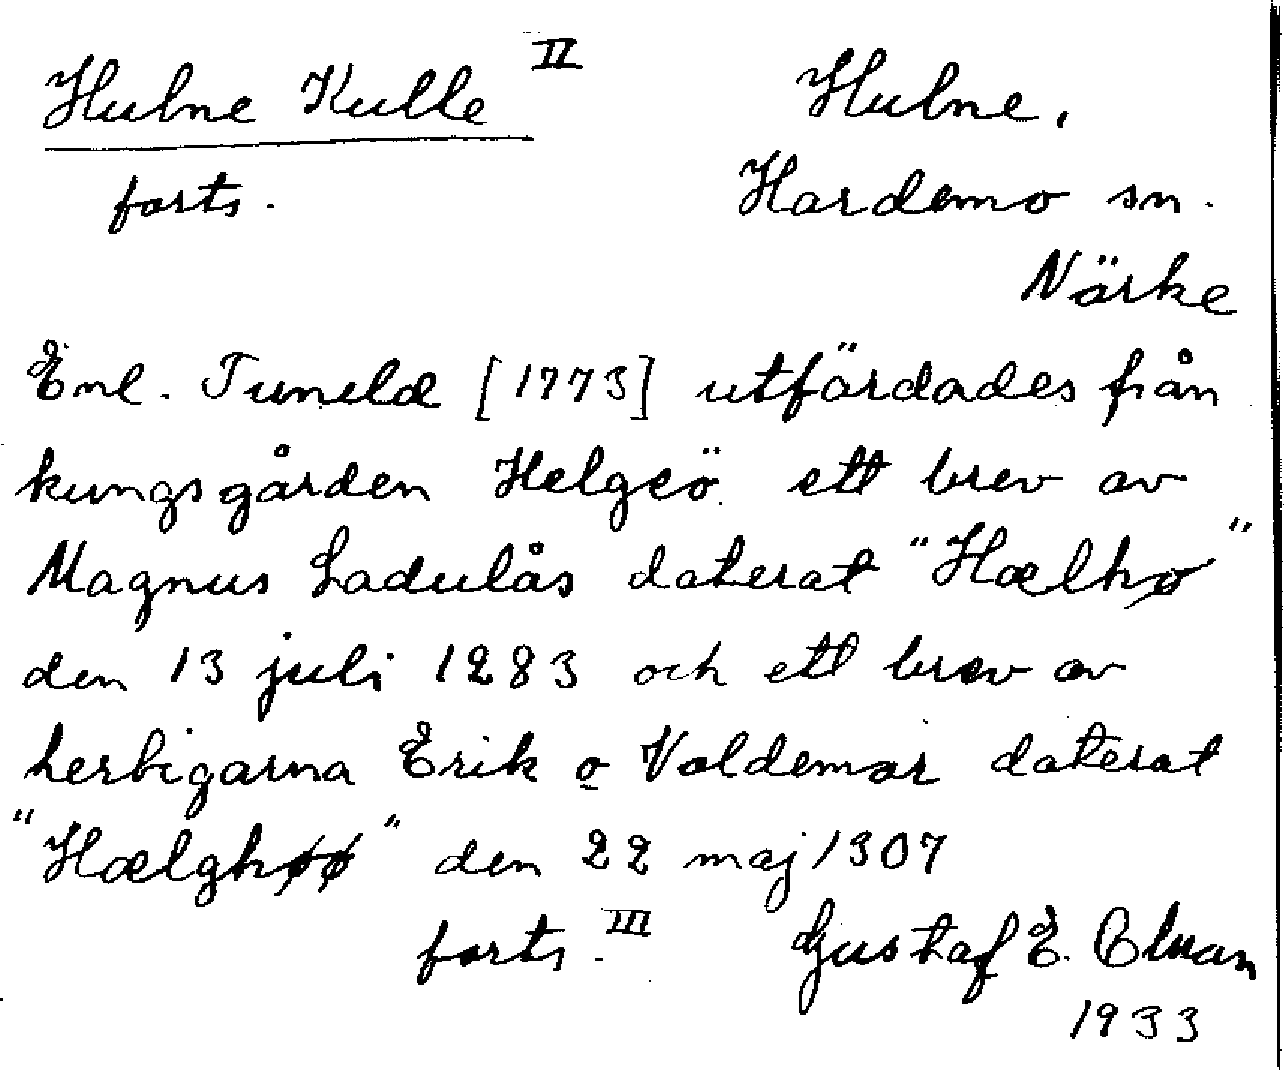 Hulne Kulle II
forts.
Hulne,
Hardemo sn.
Närke
Enl. Tuneld [1773] utfärdades från
kungsgården Helgeö ett brev av
Magnus Ladulås daterat "Hælhø"
den 13 juli 1283 och ett brev av
hertigarna Erik o Valdemar daterat
"Hælghøø" den 22 maj 1307
forts. III
Gustaf E.
1933